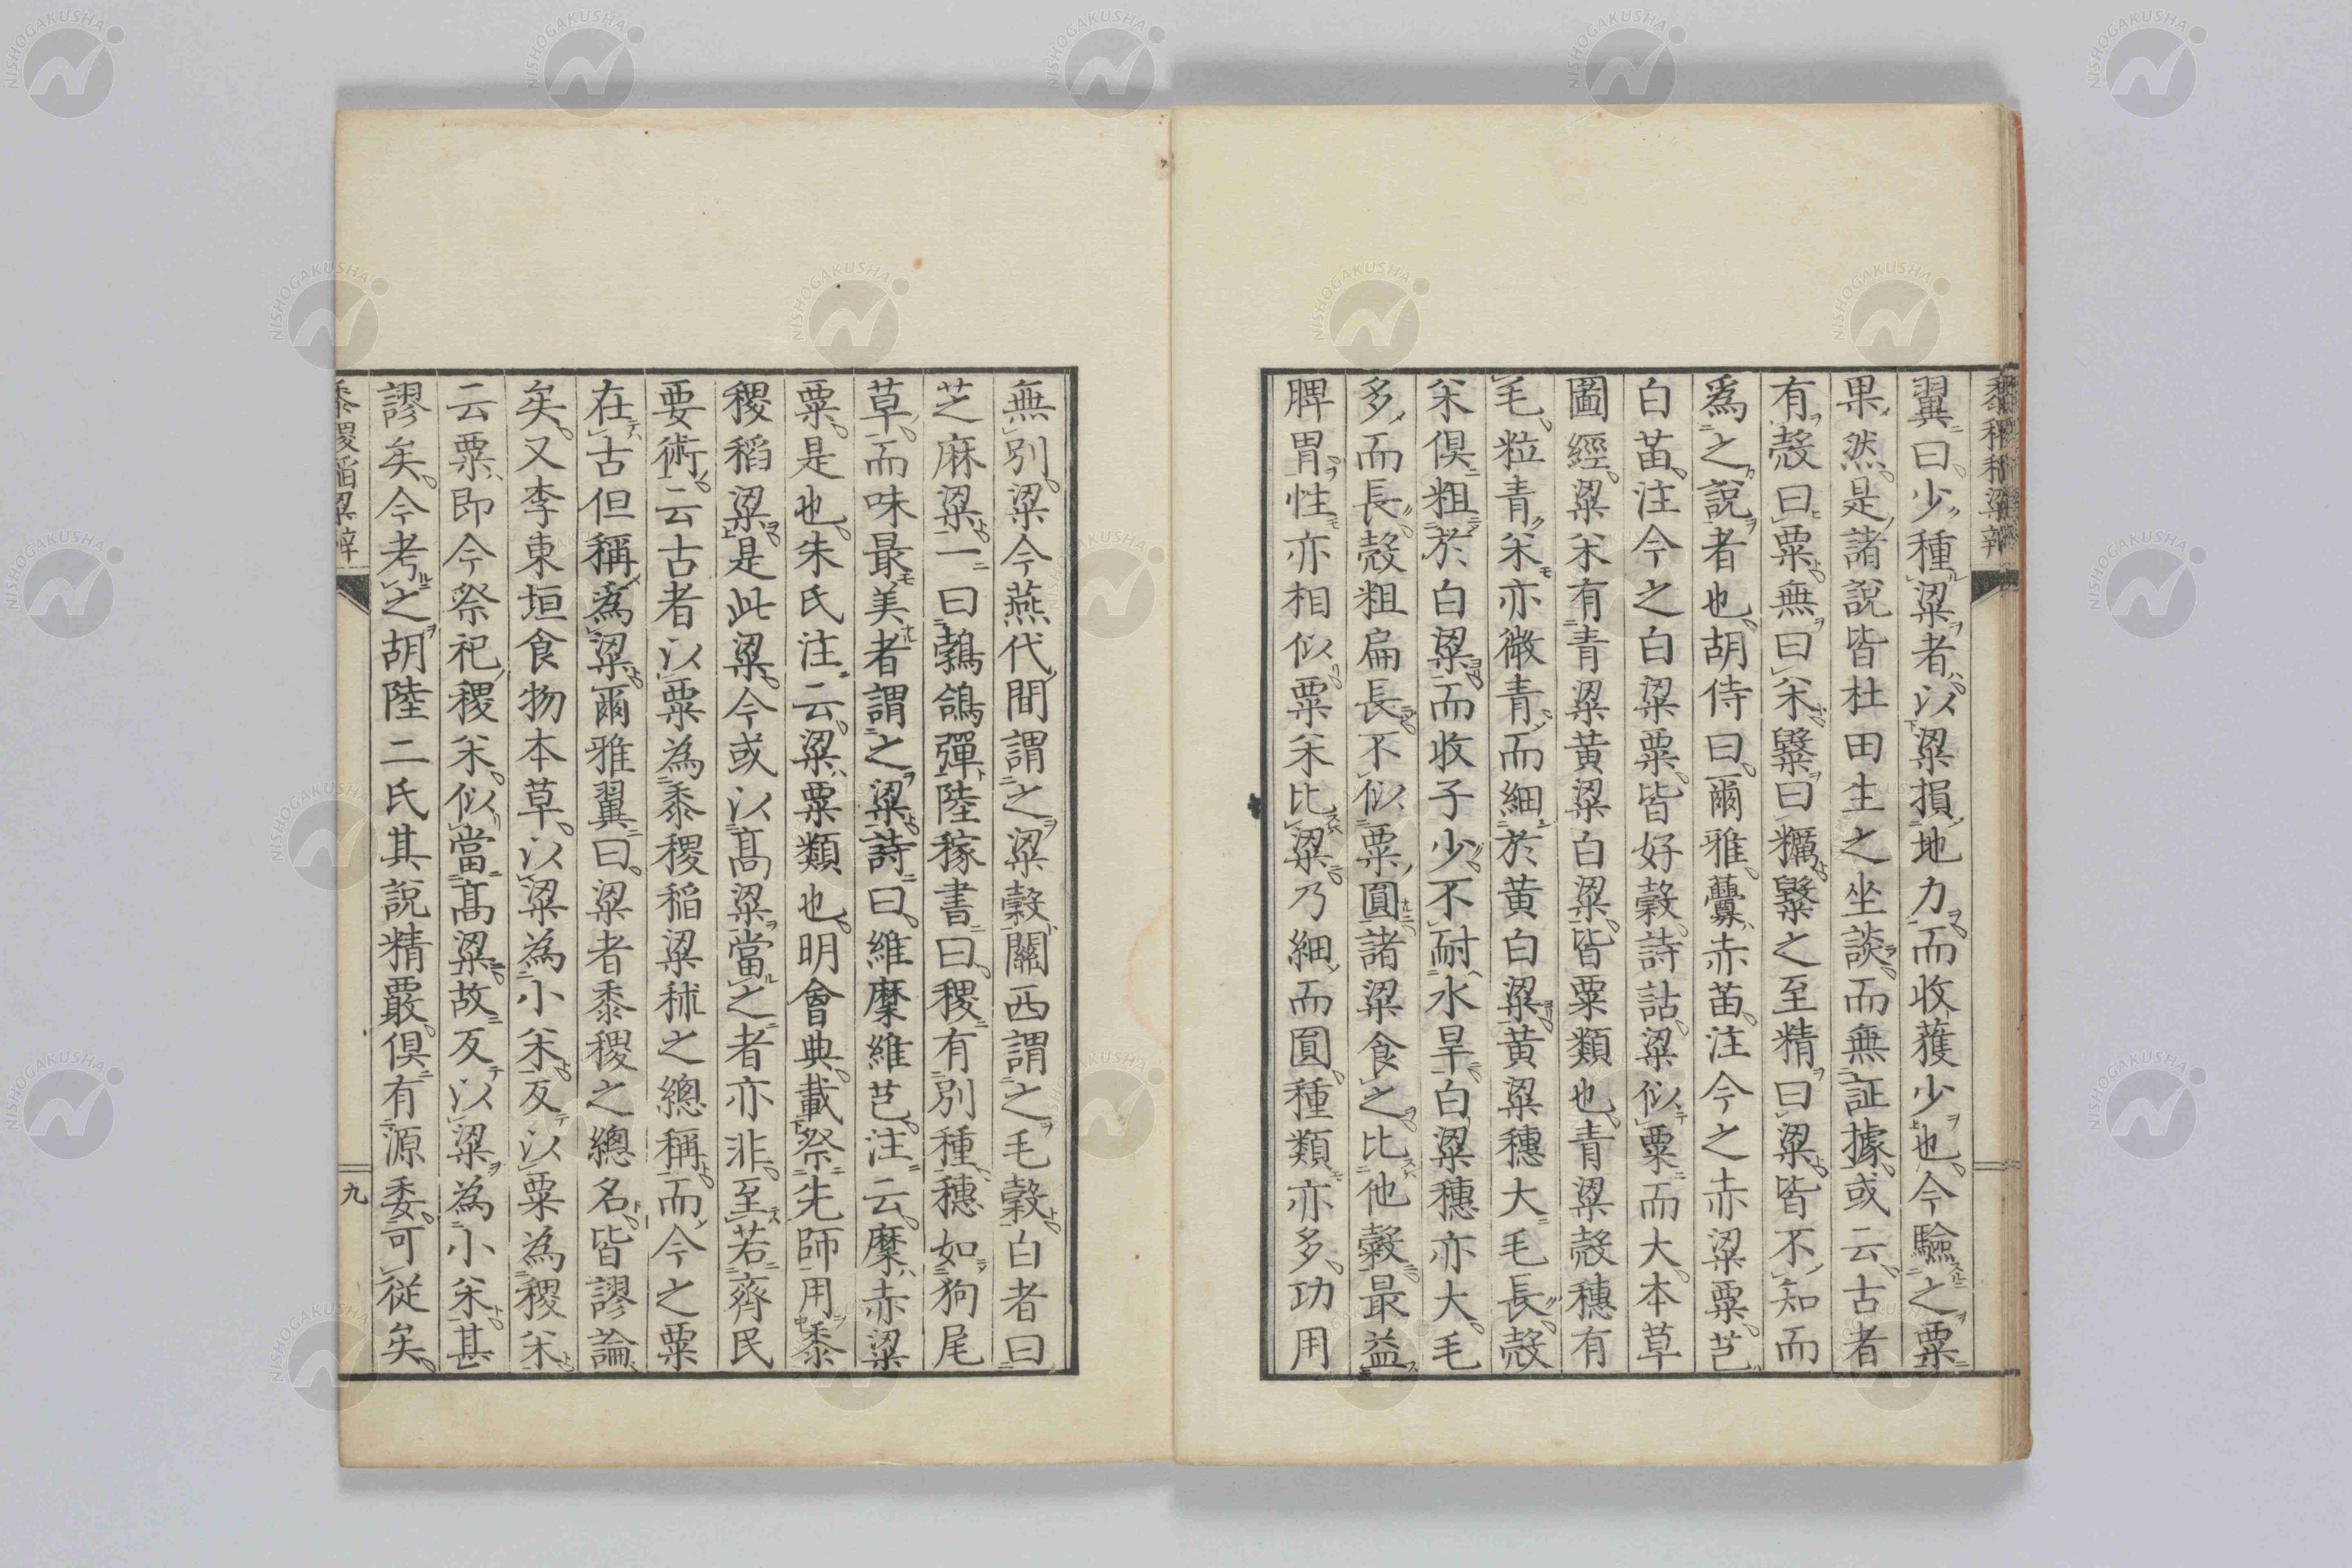 翼曰少種粱者以粱損地力而收穫少也今驗之粟
果然是諸說皆杜田生之坐談而無証據或云古者
有殼曰粟無曰米糳曰糲糳之至精曰粱皆不知而
爲之說者也胡侍曰爾雅虋赤苗注今之赤粱粟芑
白苗注今之白粱粟皆好穀詩詁粱似粟而大本草
圖經粱米有青粱黃粱白粱皆粟類也青粱殼穗有
毛粒青米亦微青而細於黃白粱黃粱穗大毛長殼
米俱粗於白粱而收子少不耐水旱白粱穗亦大毛
多而長殼粗扁長不似粟圓諸粱食之比他穀最益
脾胃性亦相似粟米比粱乃細而圓種類亦多功用
無別粱今燕代間謂之粱穀關西謂之毛穀白者曰
芝麻粱一曰鵓鴿彈陸稼書曰稷有別種穗如狗尾
草而味最美者謂之粱詩曰維穈維芑注云穈赤粱
粟是也朱氏注云粱粟類也明會典載祭先師用黍
稷稻粱是此粱今或以高粱當之者亦非至若齊民
要術云古者以粟為黍稷稻粱秫之總稱而今之粟
在古但稱爲粱爾雅翼曰粱者黍稷之總名皆謬論
矣又李東垣食物本草以粱為小米反以粟為稷米
云粟即今祭祀稷米似當高粱故反以粱為小米甚
謬矣今考之胡陸二氏其說精嚴俱有源委可從矣
黍稷稻粱辨
九
NISHOGAKUSHA